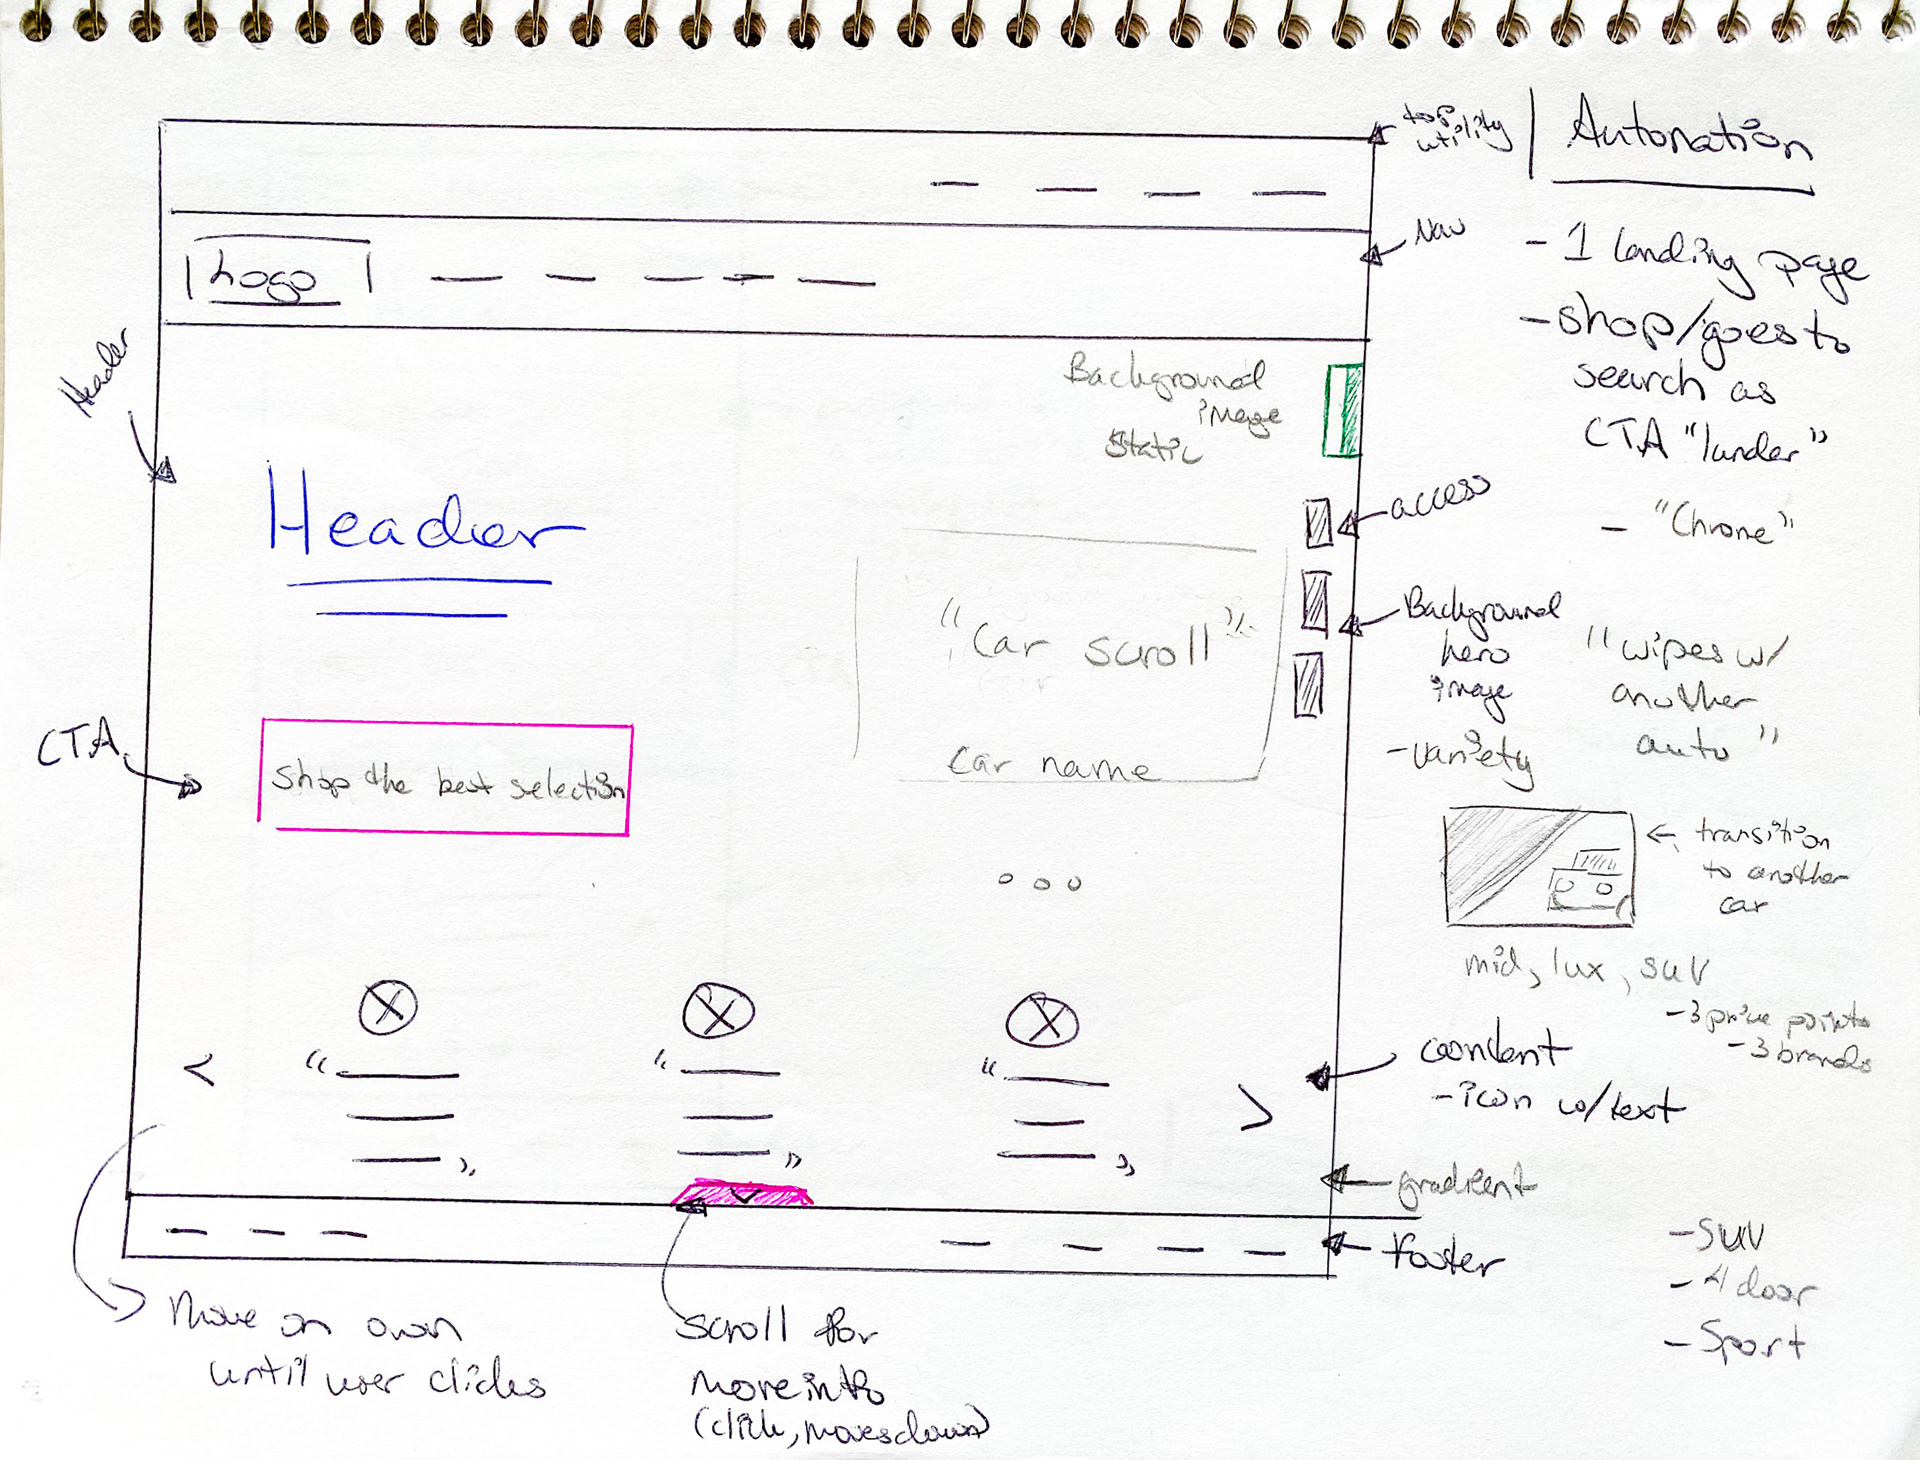 top
utility
Automation
Nav
- 1 landing page
- shop/goes to
search as
CTA "lander"
- "Chrome"
Logo
Header
Background
image
static
access
Header
"Car scroll"
car name
Background
hero
image
- variety
"wipes w/
another
auto"
CTA
Shop the best selection
← transition
to another
car
mid, lux, suv
- 3 price points
- 3 brands
<
“
”
“
”
“
”
>
content
- icon w/text
gradient
footer
- SUV
- 4 door
- Sport
Move on own
until user clicks
scroll for
more info
(click, moves down)